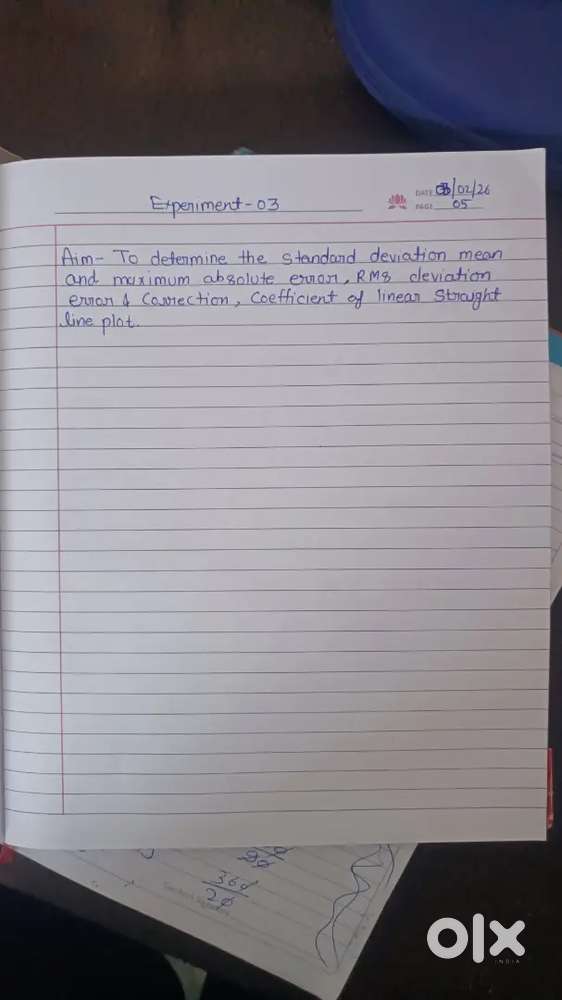 Experiment-03
DATE 03/02/26
PAGE 05
Aim- To determine the standard deviation mean
and maximum absolute error, RMS deviation
error & Correction, Coefficient of linear Straight
line plot.
360
20
olx
INDIA